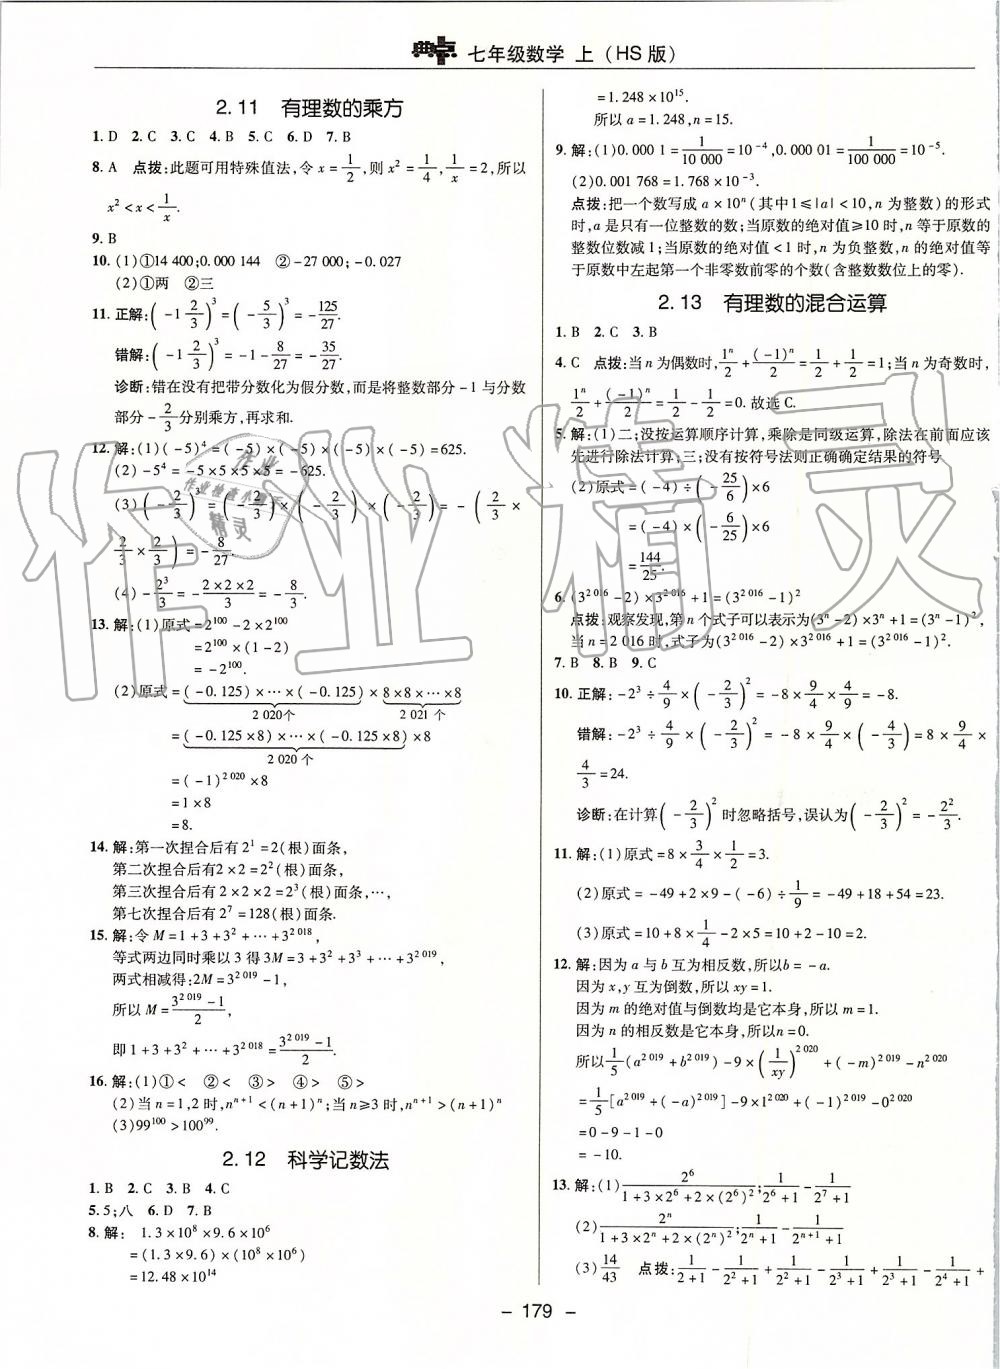 典点 七年级数学 上（HS版）
2.11 有理数的乘方
1. D 2. C 3. C 4. B 5. C 6. D 7. B
8. A 点拨:此题可用特殊值法,令 x=1/2,则 x²=1/4,1/x=2,所以
x²<x<1/x.
9. B
10. (1)①14 400;0.000 144 ②-27 000;-0.027
(2)①两 ②三
11. 正解:(-1 2/3)³=(-5/3)³=-125/27.
错解:(-1 2/3)³=-1-8/27=-35/27.
诊断:错在没有把带分数化为假分数,而是将整数部分-1与分数
部分-2/3分别乘方,再求和.
12. 解:(1)(-5)⁴=(-5)×(-5)×(-5)×(-5)=625.
(2)-5⁴=-5×5×5×5=-625.
(3)(-2/3)³=(-2/3)×(-2/3)×(-2/3)=-(2/3×
2/3×2/3)=-8/27.
(4)-2³/3=-2×2×2/3=-8/3.
13. 解:(1)原式=2¹⁰⁰-2×2¹⁰⁰
=2¹⁰⁰×(1-2)
=-2¹⁰⁰.
(2)原式=(-0.125)×⋯×(-0.125)×8×8×⋯×8
2 020个 2 021个
=(-0.125×8)×⋯×(-0.125×8)×8
2 020个
=(-1)^2 020×8
=1×8
=8.
14. 解:第一次捏合后有2¹=2(根)面条,
第二次捏合后有2×2=2²(根)面条,
第三次捏合后有2×2×2=2³(根)面条,⋯,
第七次捏合后有2⁷=128(根)面条.
15. 解:令M=1+3+3²+⋯+3^2 018,
等式两边同时乘以3得3M=3+3²+3³+⋯+3^2 019,
两式相减得:2M=3^2 019-1,
所以M=(3^2 019-1)/2,
即1+3+3²+⋯+3^2 018=(3^2 019-1)/2.
16. 解:(1)①< ②< ③> ④> ⑤>
(2)当n=1,2时,n^(n+1)<(n+1)^n;当n≥3时,n^(n+1)>(n+1)^n
(3)99¹⁰⁰>100⁹⁹.
2.12 科学记数法
1. B 2. C 3. B 4. C
5. 5;八 6. D 7. B
8. 解: 1.3×10⁸×9.6×10⁶
=(1.3×9.6)×(10⁸×10⁶)
=12.48×10¹⁴
=1.248×10¹⁵.
所以a=1.248,n=15.
9. 解:(1)0.000 1=1/10 000=10⁻⁴,0.000 01=1/100 000=10⁻⁵.
(2)0.001 768=1.768×10⁻³.
点拨:把一个数写成a×10ⁿ(其中1≤|a|<10,n为整数)的形式
时,a是只有一位整数的数;当原数的绝对值≥10时,n等于原数的
整数位数减1;当原数的绝对值<1时,n为负整数,n的绝对值等
于原数中左起第一个非零数前零的个数(含整数数位上的零).
2.13 有理数的混合运算
1. B 2. C 3. B
4. C 点拨:当n为偶数时,1ⁿ/2+(-1)ⁿ/2=1/2+1/2=1;当n为奇数时,
1ⁿ/2+(-1)ⁿ/2=1/2-1/2=0.故选C.
5. 解:(1)二;没按运算顺序计算,乘除是同级运算,除法在前面应该
先进行除法计算;三;没有按符号法则正确确定结果的符号
(2)原式=(-4)÷(-25/6)×6
=(-4)×(-6/25)×6
=144/25.
6. (3^2 016-2)×3^2 016+1=(3^2 016-1)²
点拨:观察发现,第n个式子可以表示为(3ⁿ-2)×3ⁿ+1=(3ⁿ-1)²,
当n=2 016时,式子为(3^2 016-2)×3^2 016+1=(3^2 016-1)².
7. B 8. B 9. C
10. 正解:-2³÷4/9×(-2/3)²=-8×9/4×4/9=-8.
错解:-2³÷4/9×(-2/3)²=-8×9/4×(-4/3)=8×9/4×
4/3=24.
诊断:在计算(-2/3)²时忽略括号,误认为(-2/3)²=-2²/3.
11. 解:(1)原式=8×3/4×1/2=3.
(2)原式=-49+2×9-(-6)÷1/9=-49+18+54=23.
(3)原式=10+8×1/4-2×5=10+2-10=2.
12. 解:因为a与b互为相反数,所以b=-a.
因为x,y互为倒数,所以xy=1.
因为m的绝对值与倒数均是它本身,所以m=1.
因为n的相反数是它本身,所以n=0.
所以1/5(a^2 019+b^2 019)-9×(1/xy)^2 020+(-m)^2 019-n^2 020
=1/5[a^2 019+(-a)^2 019]-9×1^2 020+(-1)^2 019-0^2 020
=0-9-1-0
=-10.
13. 解:(1)2⁶/(1+3×2⁶+2×(2⁶)²);1/(2⁶+1)-1/(2⁷+1)
(2)2ⁿ/(1+3×2ⁿ+2×(2ⁿ)²);1/(2ⁿ+1)-1/(2ⁿ⁺¹+1)
(3)14/43 点拨:1/(2+1)-1/(2²+1)+1/(2²+1)-1/(2³+1)+1/(2³+1)-1/(2⁴+1)+
- 179 -
作业精灵
作业
作业检查小帮手
精灵